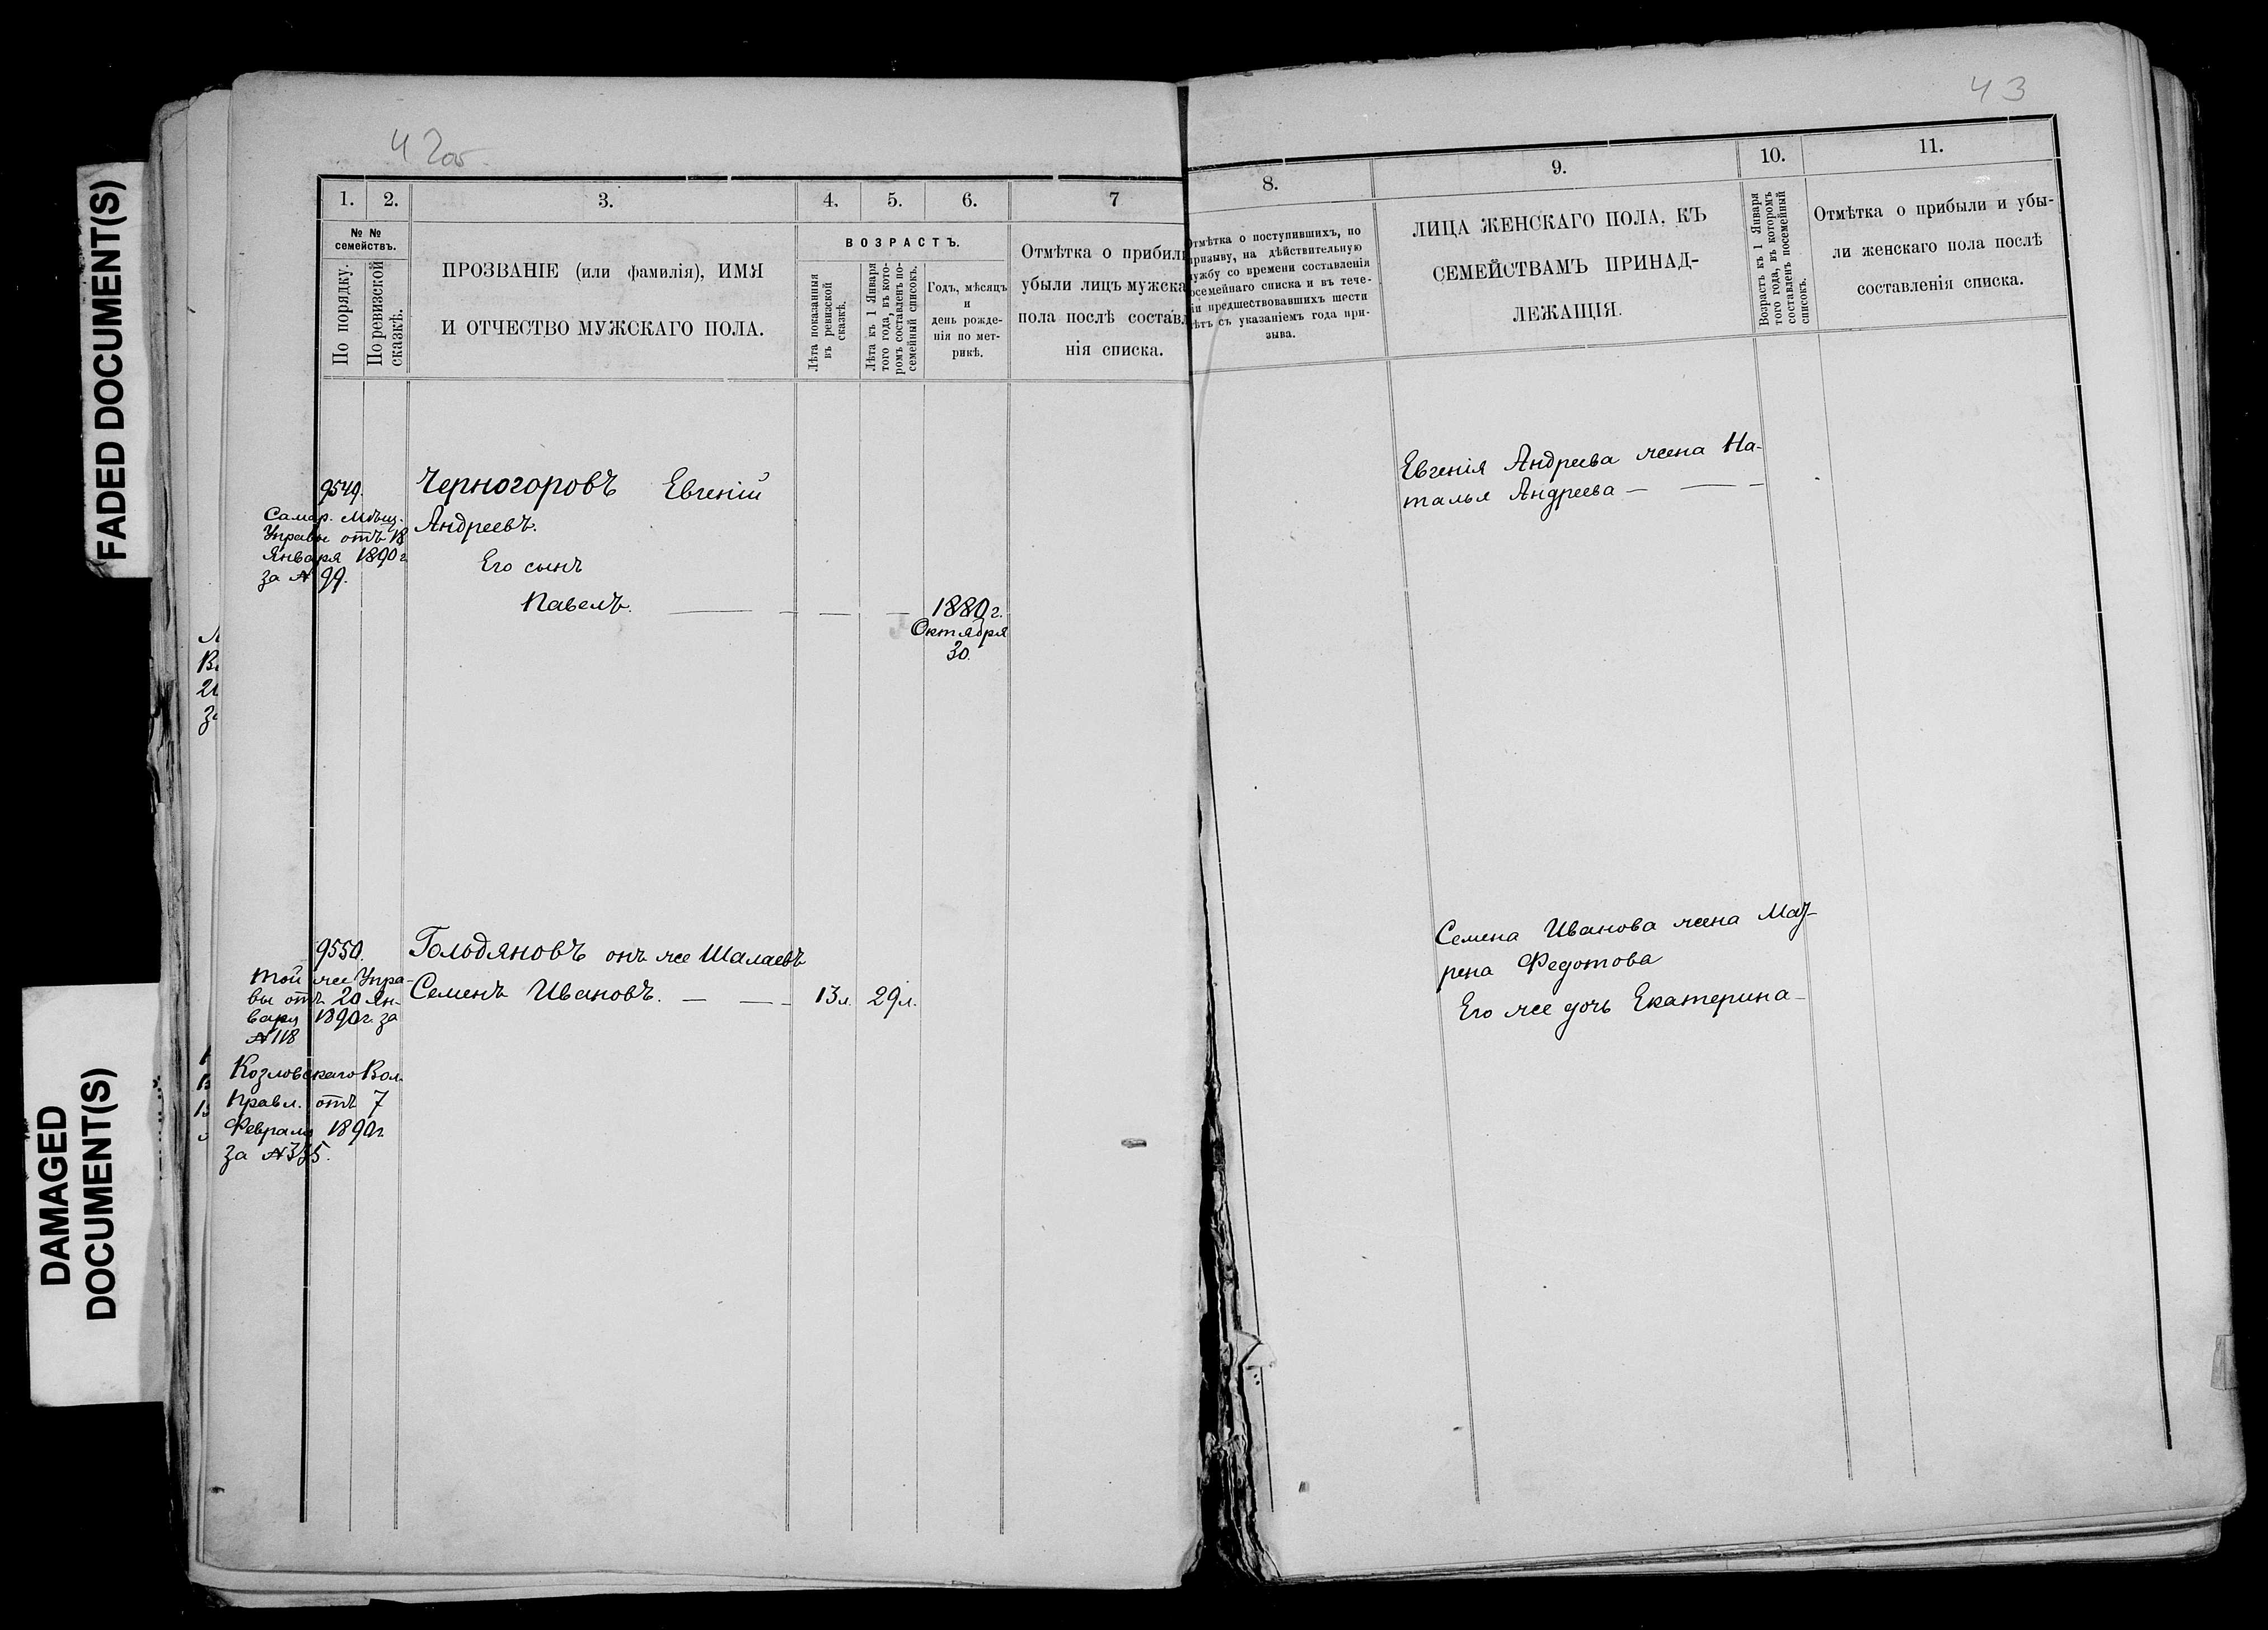 FADED DOCUMENT(S)
DAMAGED
DOCUMENT(S)
42об.
1.
2.
3.
4.
5.
6.
7
№ №
семействъ.
По порядку.
По ревизской
сказкѣ.
ПРОЗВАНІЕ (или фамилія), ИМЯ
И ОТЧЕСТВО МУЖСКАГО ПОЛА.
ВОЗРАСТЪ.
Лѣта показанныя
въ ревизской
сказкѣ.
Лѣта къ 1 Января
того года, въ кото-
ромъ составленъ по-
семейный списокъ.
Годъ, мѣсяцъ
и
день рожде-
нія по мет-
рикѣ.
Отмѣтка о прибыли
убыли лицъ мужска
пола послѣ составл
нія списка.
9549.
Самар. Мѣщ.
Управы отъ 18
Января 1890 г
за № 99.
Черногоровъ Евгеній
Андреевъ.
Его сынъ
Павелъ.
1880 г.
Октября
30.
9550.
Той же Упра-
вы отъ 20 Ян-
варя 1890 г. за
№ 118
Козловскаго Вол.
Правл. отъ 7
Февраля 1890 г
за №
Гольдяновъ онъ же Шалаевъ
Семенъ Ивановъ. — — 13 л. 29 л.
43
8.
9.
10.
11.
Отмѣтка о поступившихъ, по
призыву, на дѣйствительную
лужбу со времени составленія
осемейнаго списка и въ тече-
іи предшествовавшихъ шести
лѣтъ съ указаніемъ года при-
зыва.
ЛИЦА ЖЕНСКАГО ПОЛА, КЪ
СЕМЕЙСТВАМЪ ПРИНАД-
ЛЕЖАЩІЯ.
Возрастъ къ 1 Января
того года, въ которомъ
составленъ посемейный
списокъ.
Отмѣтка о прибыли и убы-
ли женскаго пола послѣ
составленія списка.
Евгенія Андреева жена На-
талья Андреева —
Семена Иванова жена Мат-
рена Федотова
Его же дочь Екатерина —